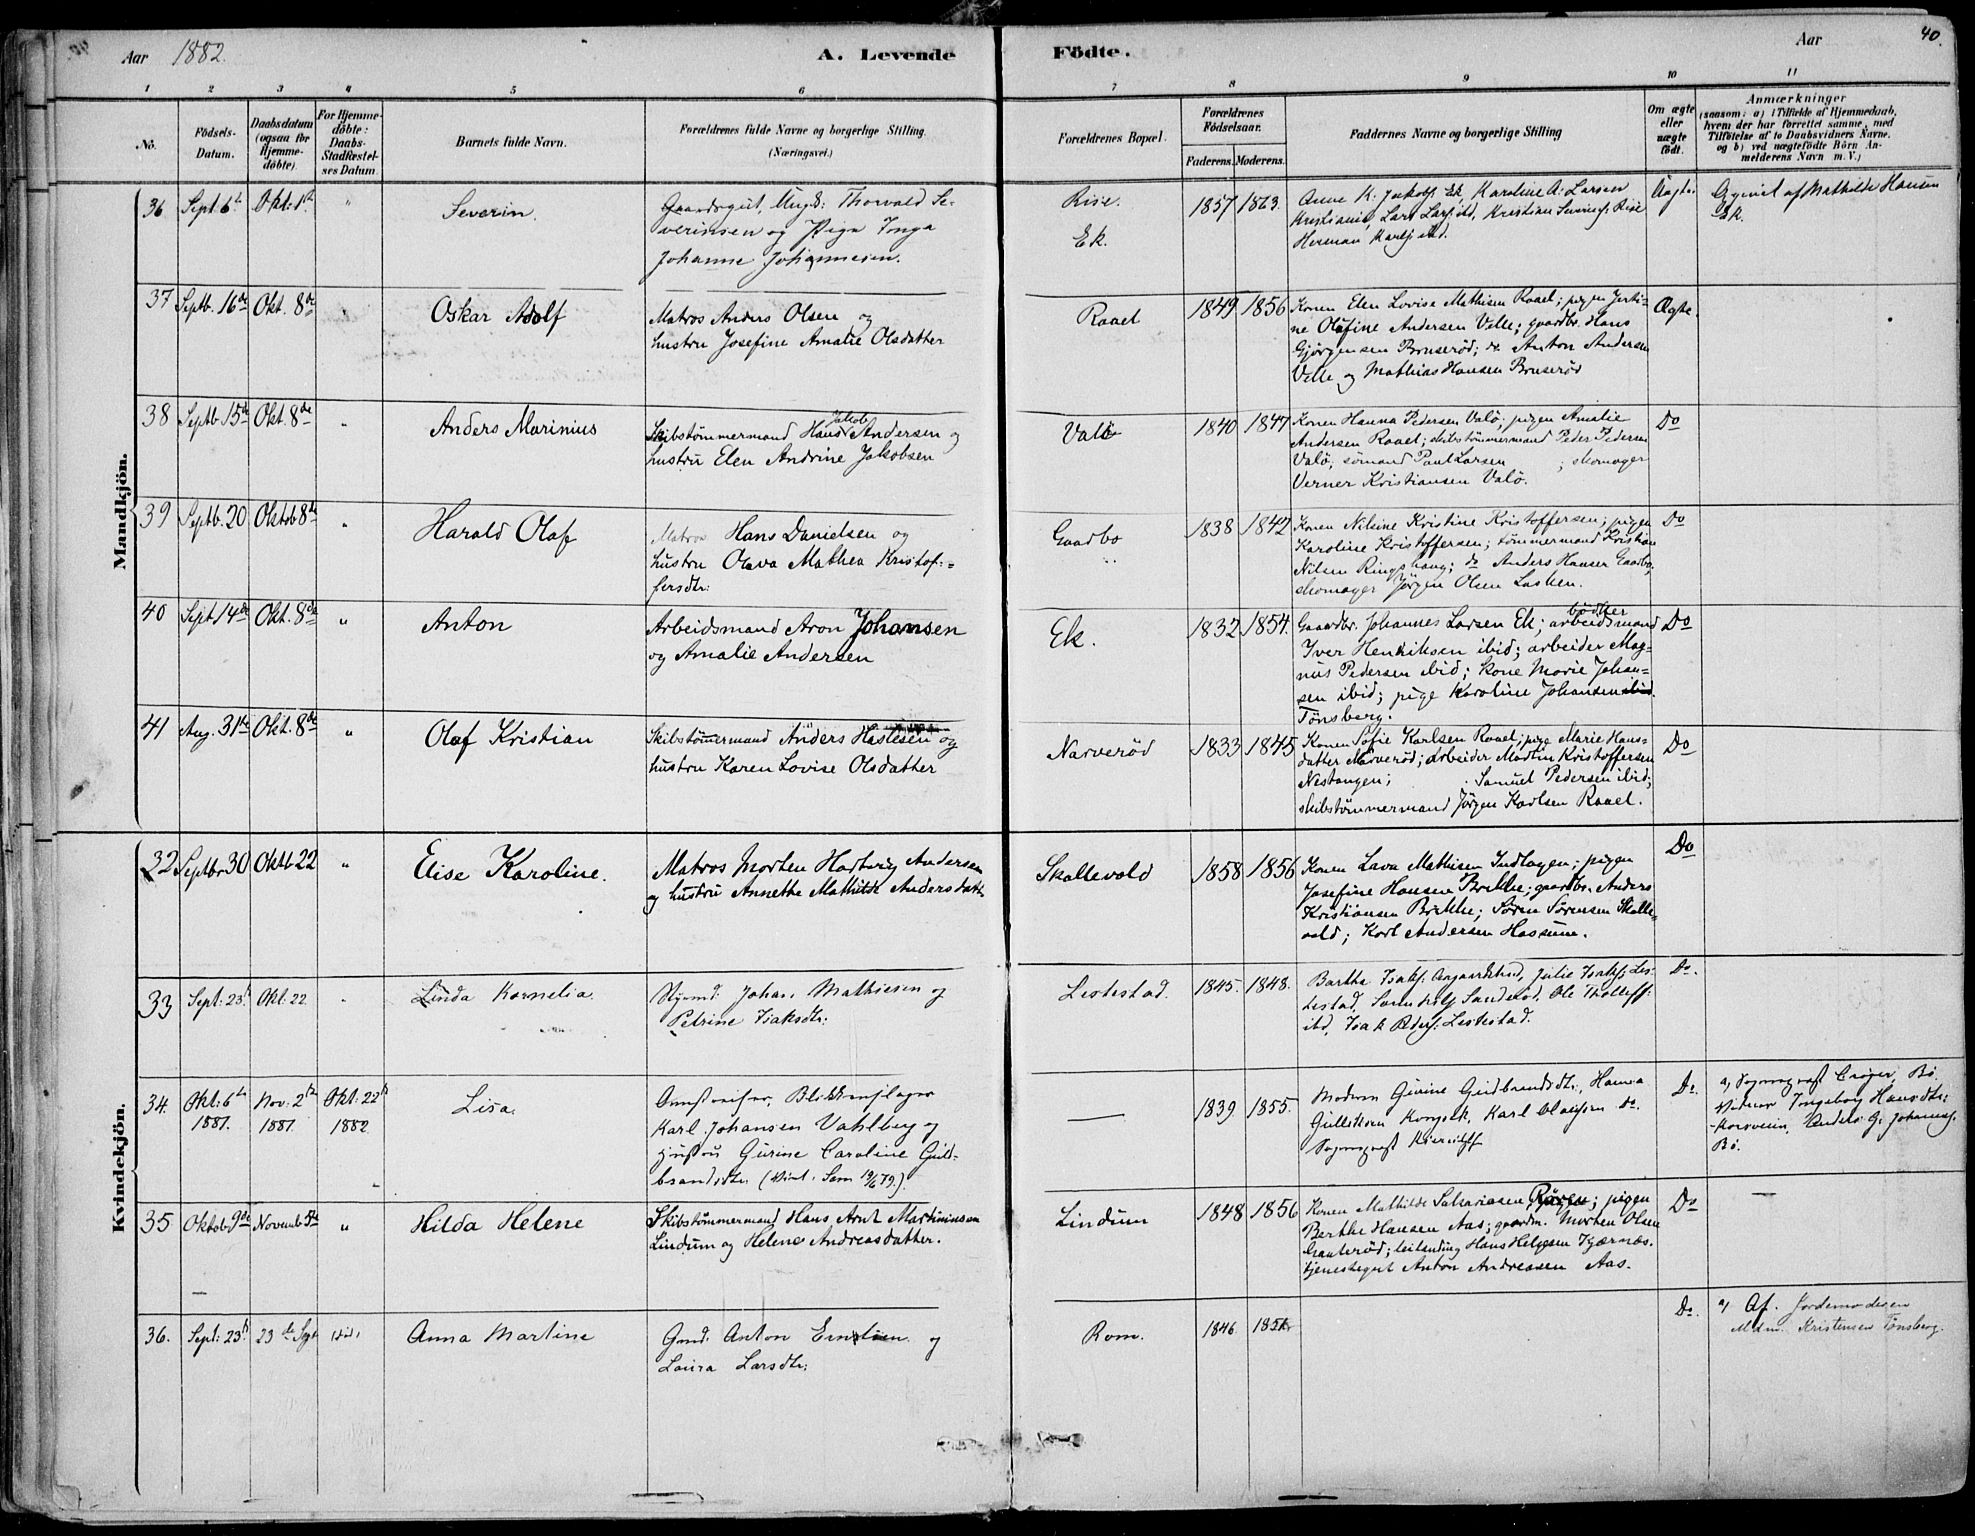 Aar 1882.
A. Levende Födte.
Aar
40.
1 2 3 4 5 6 7 8 9 10 11
No.
Födsels-Datum.
Daabsdatum (ogsaa for Hjemme-döbte).
For Hjemme-döbte: Daabs-Stadfæstel-ses Datum.
Barnets fulde Navn.
Forældrenes fulde Navne og borgerlige Stilling. (Næringsvei.)
Forældrenes Bopæl.
Forældrenes Födselsaar.
Faderens. Moderens.
Faddernes Navne og borgerlige Stilling
Om ægte eller uægte födt.
Anmærkninger
(saasom: a) i Tilfælde af Hjemmedaab,
hvem der har forrettet samme, med
Tilföielse af to Daabsvidners Navne.
og b) ved uægtefödte Börn An-
melderens Navn m. V.)
Mandkjön.
36 Sept: 6te Okt: 1ste " Severin.
Gaardsgut, Ungk: Thorvald Se-
verinsen og Pige Inga
Johanne Johannesen.
Rise.
Ek.
1857 1863.
Anne K. Jakobs. Ek, Karoline A. Larsen
Kristiania, Lars Lars. ibd, Kristian Severins. Rise
Herman Karls. ibd.
Uægte
Opgivet af Mathilde Hansen
Ek.
37 Septb. 16de Okt. 8de " Oskar Adolf
Matros Anders Olsen og
hustru Josefine Amalie Olsdatter
Raael
1849 1856
Konen Elen Lovise Mathisen Raael; pigen Jerti-
ne Olafine Andersen Velle; gaardbr. Hans
Gjörgensen Bruserød; do Anton Andersen
Velle og Mathias Hansen Bruserød
Ægte.
38 Septb 15de Okt. 8de " Anders Marinius
Skibstømmermand Hans Jakob Andersen og
hustru Elen Andrine Jakobsen
Valö
1840 1847
Konen Hanna Pedersen Valö; pigen Amalie
Andersen Raael; skibstømmermand Peder Pedersen
Valö; sömand Paul Larsen ; skomager
Verner Kristiansen Valö.
Do
39 Septb. 20 Oktob 8de " Harald Olaf
Matros Hans Danielsen og
hustru Olava Mathea Kristof-
fersdtr:
Gaardbo
1838 1842
Konen Nilsine Kristine Kristoffersen; pigen
Karoline Kristoffersen; tømmermand Kristian
Nilsen Ringshaug; do Anders Hansen Gaardbo;
skomager Jörgen Olsen Lasken.
Do
40 Sept 14de Okt. 8de " Anton
Arbeidsmand Aron Johansen
og Amalie Andersen
Ek.
1832 1854.
Gaardbr. Johannes Larsen Ek; bödker arbeidsmand
Iver Henriksen ibid; arbeider Mag-
nus Pedersen ibid; kone Marie Johan-
sen ibid; pige Karoline Johansen ibid.
Tönsberg.
Do
41 Aug. 31te Okt. 8de " Olaf Kristian
Skibstømmermand Anders Haslesen og
hustru Karen Lovise Olsdatter
Narverød
1833 1845
Konen Sofie Karlsen Raael; pige Marie Hans-
datter Narverød; arbeider Martin Kristoffersen
Nestangen; Samuel Pedersen ibid;
skibstømmermand Jörgen Karlsen Raael.
Do
Kvindekjön.
32 Septbr 30 Oktb 22 " Elise Karoline.
Matros Morten Hartvig Andersen
og hustru Annethe Mathilde Andersdatter
Skallevold
1858 1856
Konen Lava Mathisen Indlagen; pigen
Josefine Hansen Brekke; gaardbr. Anders
Kristiansen Brekke; Sören Sörensen Skalle-
vold; Karl Andersen Hassum.
Do
33 Sept: 23de Okt: 22 " Linda Kornelia.
Styrmd: Johan Mathiesen og
Petrine Isaksdtr:
Lestestad.
1845. 1848.
Barthe Isaks. Aagaardstad, Julie Isaks. Les-
testad, Sanderöd, Ole Tholleff:
ibd, Isak Peders. Lestestad.
Do.
34. Okt: 6te 1881. Nov: 2den 1881. Okt: 22de 1882. Lisa.
Blikkenslager
Karl Johansen Vahlberg og
Hustru Gurine Caroline Guld-
brandsdtr. (Viet. Sem 19/6 79.)
—
1839 1855.
Modern Gurine Guldbrandsdtr., Hanna
Gulliksen Kongsek, Karl Clausen do.
Sognepræst
Do.
a) Sognepræst Crøger, Bö.
Vidner Ingeborg Hansdtr:
Anders G. Johannes.
Bö.
35 Oktob 9de Novemb 5te " Hilda Helene
Skibstømmermand Hans Arnt Martiniusen
Lindum og Helene Andreasdatter.
Lindum
1848 1856
Konen Mathilde Sakariasen Rören; pigen
Berthe Hansen Aas; gaardm. Morten Olsen
Granteröd; leilænding Hans Helgesen Kjærnæs.
tjenestegut Anton Andreasen Aas.
Do
—
36. Sept: 23de 23de Sept ibid. Anna Martine
Gmd: Anton Ernstsen og
Laura Larsdtr:
Rom.
1846
Do.
a) Af. Jordemoderen
Mdm. Kristensen Tönsberg.